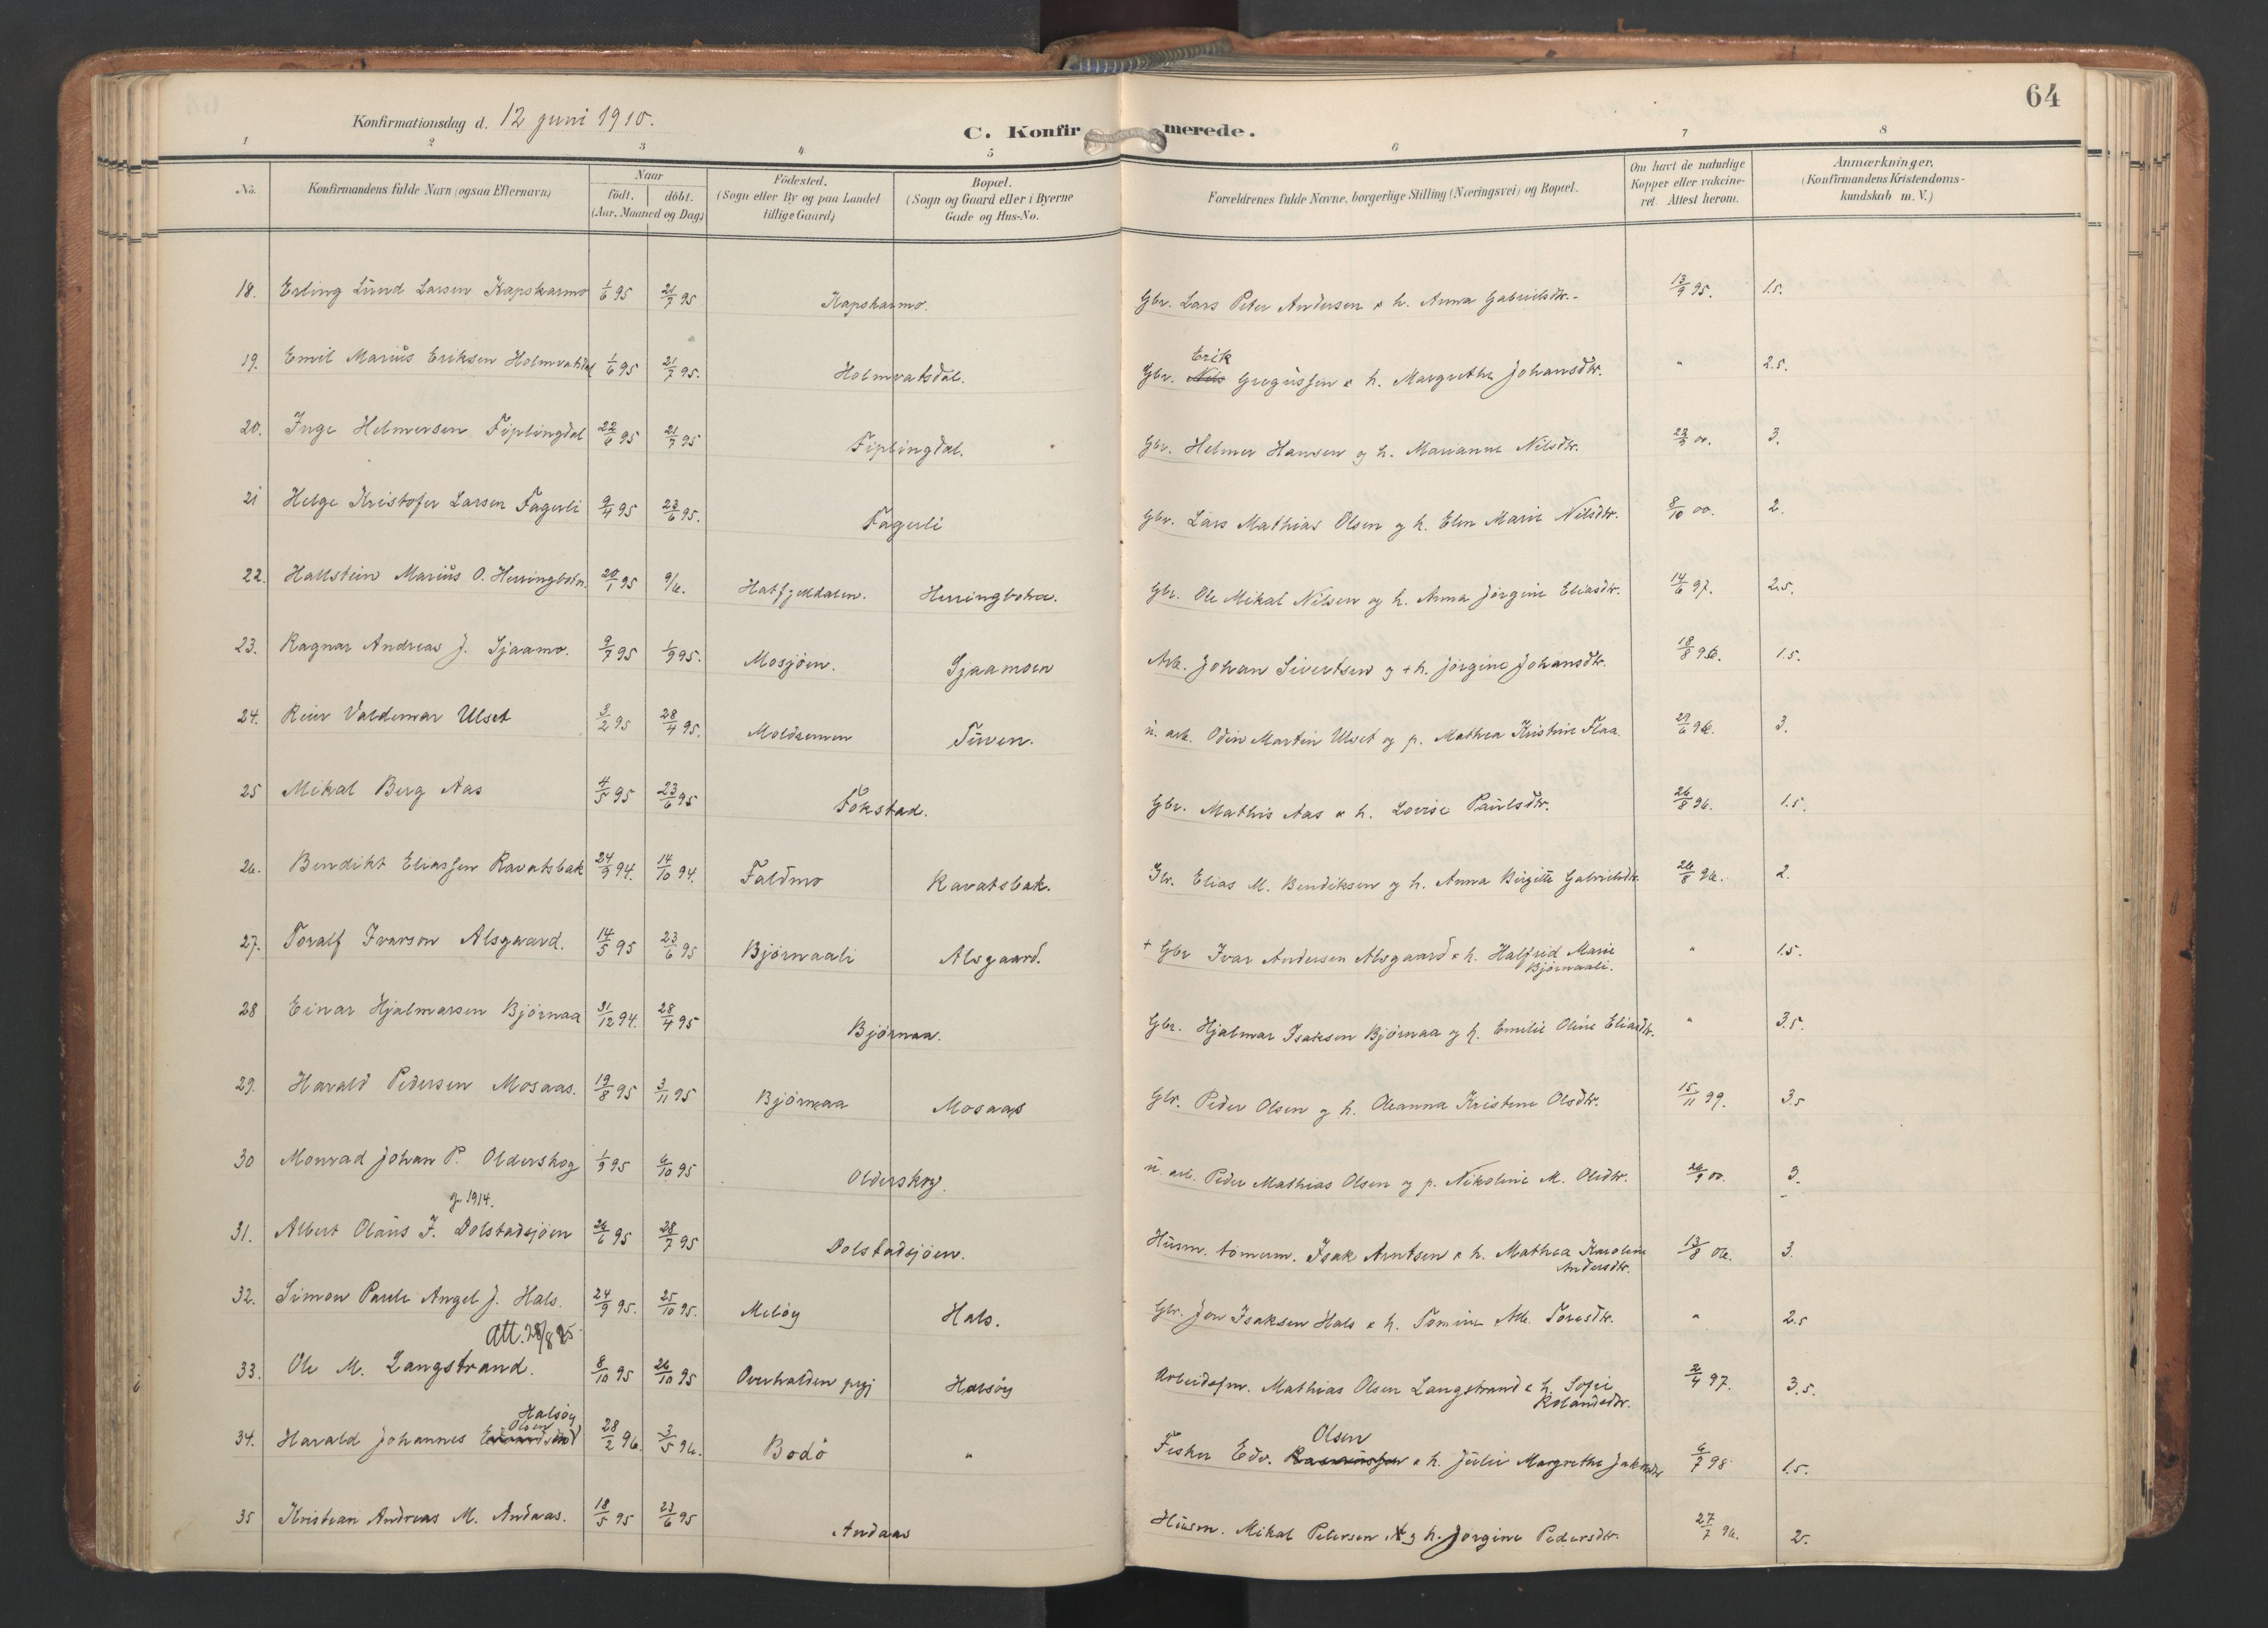 64
Konfirmationsdag d. 12 juni 1910.
C. Konfirmerede.
1 2 3 4 5 6 7 8
No. Konfirmandens fulde Navn (ogsaa Efternavn)
Naar
født. døbt.
(Aar, Maaned og Dag)
Födested.
(Sogn eller By og paa Landet
tillige Gaard)
Bopæl.
(Sogn og Gaard eller i Byerne
Gade og Hus-No.
Forældrenes fulde Navne, borgerlige Stilling (Næringsvei) og Bopæl.
Om havt de naturlige
Kopper eller vakcine-
ret. Attest herom.
Anmærkninger.
(Konfirmandens Kristendoms-
kundskab m. V.)
18. Erling Lund Larsen Kapskarmo 1/6 95 21/7 95 Kapskarmo. Gbr. Lars Peter Andersen & h. Anna Gabrielsdtr. 13/9 95. 1.5.
19. Emil Marius Eriksen Holmvatsdal 1/6 95 21/7 95. Holmvatsdal. Gbr. Nils Erik Gregussen & h. Margrethe Johansdtr. " 2.5.
20. Inge Helmersen Fiplingdal 22/6 95 21/7 95 Fiplingdal. Gbr. Helmer Hansen og h. Marianne Nilsdtr. 00. 3.
21 Helge Kristofer Larsen Fagerli 9/4 95 23/6 95. Fagerli Gbr. Lars Mathias Olsen og h. Elen Marie Nilsdtr. 8/10 00. 2.
22. Hallstein Marius O. Herringbotn 20/1 95 9/6. Hatfjelldalen. Herringbotn. Gbr. Ole Mikal Nilsen og h. Anna Jørgine Eliasdtr. 14/6 97. 2.5.
23. Ragnar Andreas J. Sjaamo. 9/7 95 1/9 95. Mosjøen. Sjaamoen Arb. Johan Sivertsen og + h. Jørgine Johansdtr. 18/8 96. 1.5.
24. Reier Valdemar Ulset 3/2 95 28/4 95. Moldremen Tuven. u. arb. Odin Martin Ulset og p. Mathea Kristine Flaa 96. 3.
25 Mikal Berg Aas 4/5 95 23/6 95 Fokstad. Gbr. Mathis Aas & h. Lovise Paulsdtr. 26/8 96. 1.5.
26. Bendikt Eliassen Ravatsbak 24/9 94. 14/10 94. Faldmo Ravatsbak. Gbr. Elias M. Bendiksen og h. Anna Birgitte Gabrielsdtr. 26/8 96. 2.
27. Toralf Ivarson Alsgaard. 14/5 95 23/6 95 Bjørnaali Alsgaard. + Gbr Ivar Andersen Alsgaard & h. Halfrid Marie
Bjørnaali. " 1.5.
28 Einar Hjalmarsen Bjørnaa 31/12 94. 28/4 95 Bjørnaa. Gbr. Hjalmar Isaksen Bjørnaa og h. Emilie Oline Eliasdtr. " 3.5.
29. Harald Pedersen Mosaas. 19/8 95 3/11 95 Bjørnaa Mosaas Gbr. Peder Olsen og h. Oleanna Kristine Olsdtr. 15/11 99. 3.5
30 Monrad Johan P. Olderskog 1/9 95 6/10 95 Olderskog. u. arb. Peder Mathias Olsen og p. Nikoline M. Olsdtr. 26/9 00. 3.
g. 1914.
31. Albert Olaus I. Dolstadsjøen 26/6 95 28/7 95 Dolstadsjøen. Husm. tømerm. Isak Arntsen & h. Mathea Karoline
Andersdtr. 13/8 06. 3.
32. Simon Paule Angel J. Hals. 24/9 95. 25/10 95. Meløy Hals. Gbr. Jon Isaksen Hals & h. Tomine Toresdtr. " 2.5
Att. 28/8 25
33. Ole M. Langstrand. 8/10 95 26/10 95 Overhalden prgj Halsøy Arbeidsfm. Mathias Olsen Langstrand & h. Sofie
Rolandsdtr. 2/4 97. 3.5.
34. Harald Johannes Olsen Halsøy 28/2 96. 3/5 96. Bodø " Fisker Edv. Rasmussen Olsen & h. Julie Margrethe 6/7 98 1.5.
35 Kristian Andreas M. Andaas. 18/5 95 23/6 95 Andaas Husm. Mikal Petersen og h. Jørgine Pedersdtr. 27/7 96. 2.